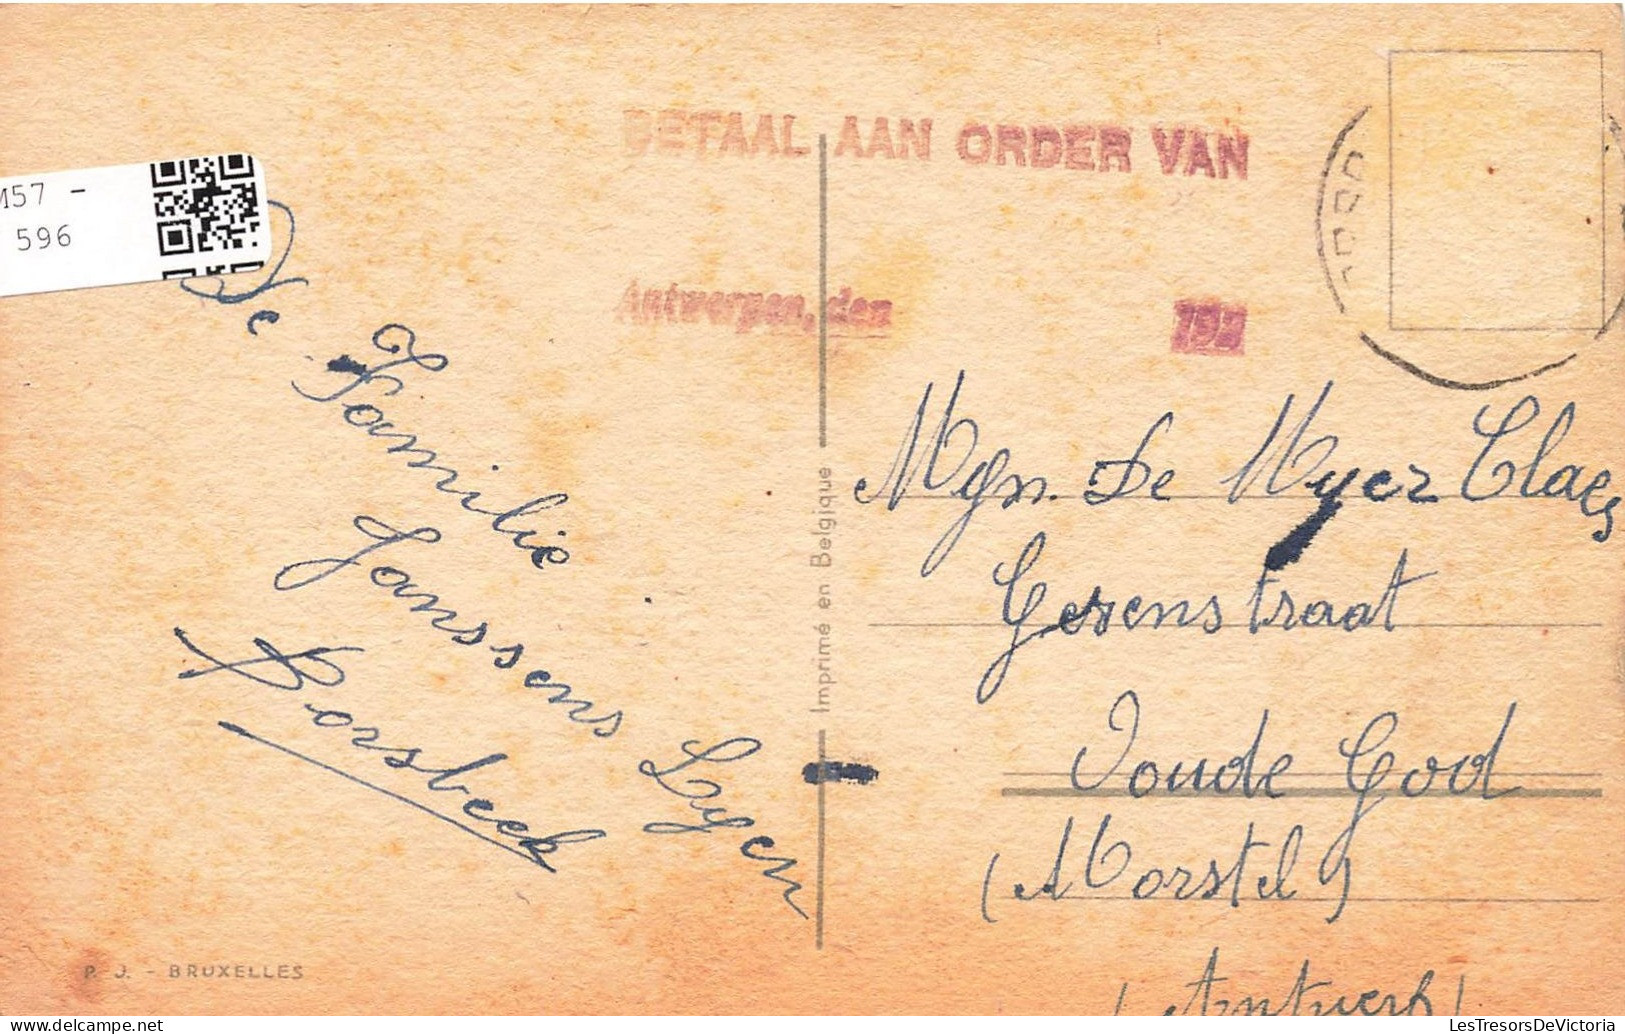 M57 -
596
BETAAL AAN ORDER VAN
Antwerpen, den 192
De Familie
Janssens Lyen
Borsbeek
Imprimé en Belgique
Mgn. De Myer Claes
Gerenstraat
Joude God
(Morstel)
(Antwerp)
P. J. - BRUXELLES
LesTresorsDeVictoria